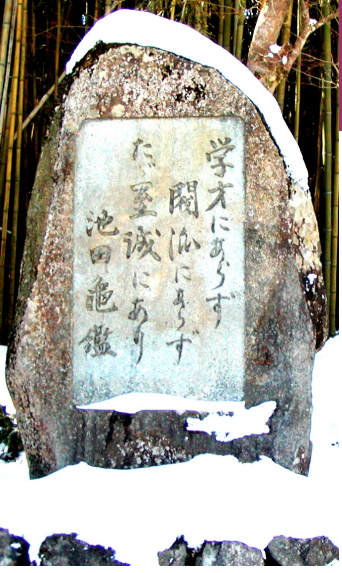 学才にあらず
閥派にあらず
たゞ至誠にあり
池田亀鑑